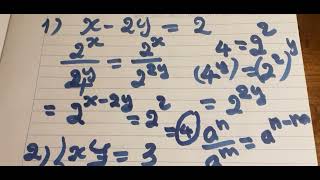 1) x - 2y = 2
2^x / 2y = 2^x / 2^2y
4 = 2^2
(4^y) = (2^2)^y
= 2^x-2y = 2^2 = 4
= 2^2y
a^n / a^m = a^n-m
2) xy = 3